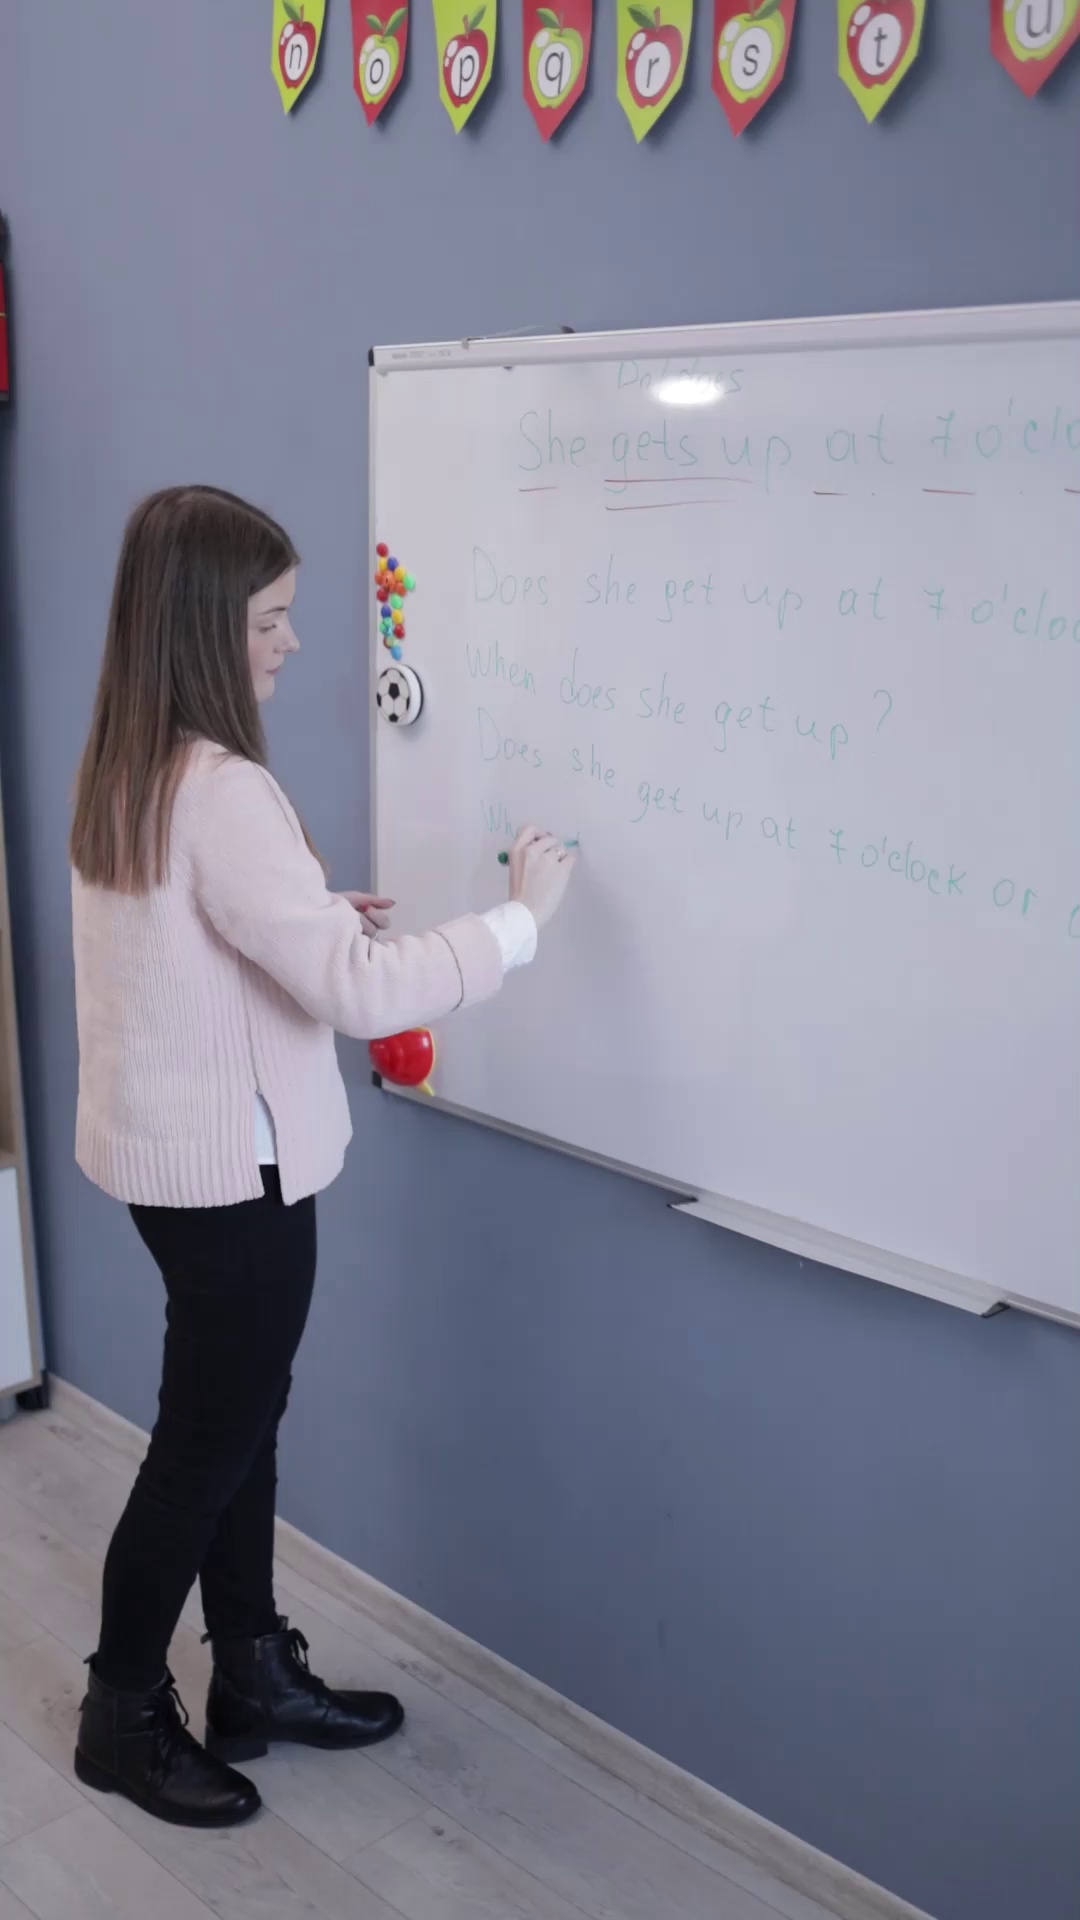 n o p q r s t u
Do/does
She gets up at 7 o'clo
Does she get up at 7 o'cloc
When does she get up ?
Does she get up at 7 o'clock or
Wh